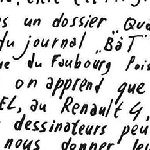 un dossier "Qua
du journal "BàT"
du Faubourg Pois
on apprend que
EL, au Renault 4,
dessinateurs peu
nous donner leu